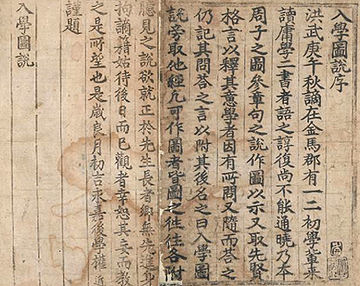 入學圖說序
洪武庚午秋謫在金馬郡有一二初學輩來
讀庸學二書者語之諄復尚不能通曉乃本
周子之圖參章句之說作圖以示又取先賢
格言以釋其意學者因有所問又隨而答之
仍記其問答之言以附其後名之曰入學圖
說旁取他經凡可作圖者皆圖之往往各附
臆見之說欲就正於先生長者鄉無先達身
拘謫籍姑待後日而已觀者幸恕其妄而教
之是所望也是歲良月初吉永嘉後學權近
謹題
入學圖說